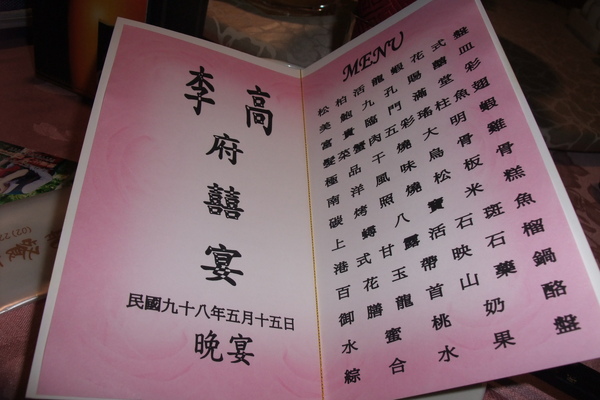 李 高
府
囍
宴
民國九十八年五月十五日
晚宴
MENU
松柏活龍蝦花式盤
美鮑九孔賜蘭皿
富貴臨門滿堂彩
髮菜蟹肉五彩瑤柱魚翅
極品干燒大明蝦
南洋風味烏骨雞
碳烤照燒松板骨
上鱘八寶米糕
港式甘露活石斑魚
百花玉帶映石榴
御膳龍首山藥鍋
水蜜桃奶酪
綜合水果盤